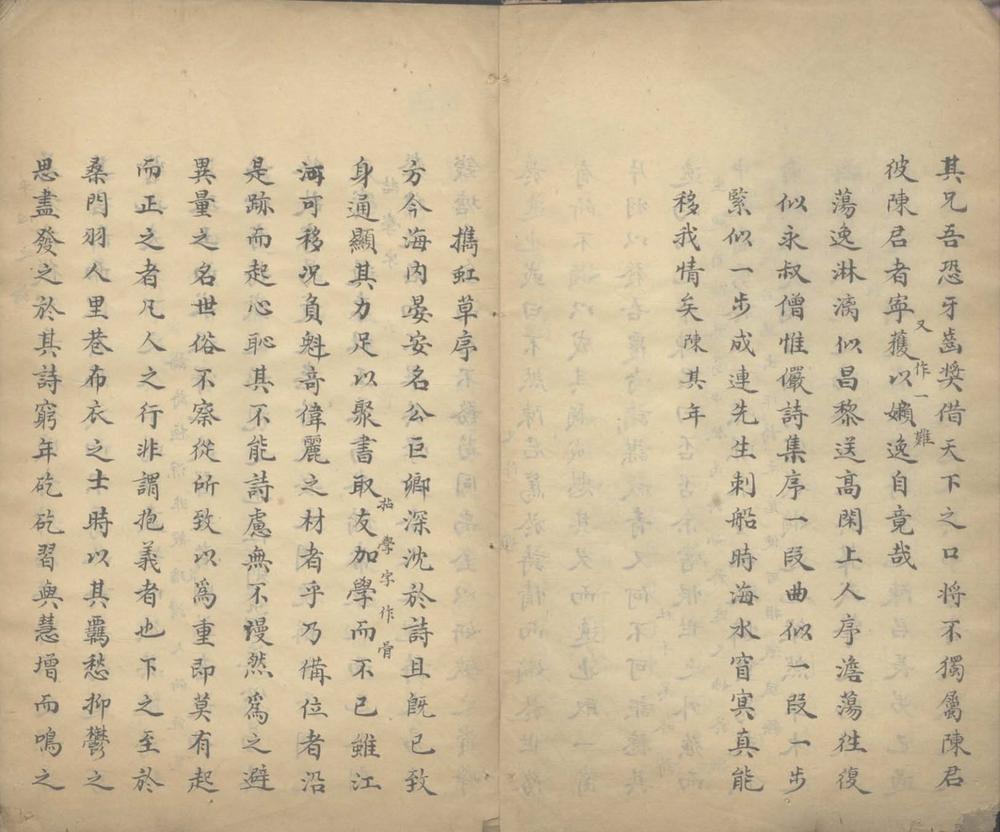 其兄吾恐牙齒奬借天下之口將不獨屬陳君
彼陳君者寧獲以嬾逸自竟哉
又作一難
蕩逸淋漓似昌黎送高閑上人序澹蕩徃復
似永叔僧惟儼詩集序一段曲似一段一步
緊似一步成連先生刺船時海水窅冥真能
移我情矣陳其年
擕虹草序
方今海内晏安名公巨鄉深沈於詩且既已致
身通顯其力足以聚書取友加學而不已雖江
拈學字作骨
河可移况負魁竒偉麗之材者乎乃備位者沿
是跡而起心恥其不能詩慮無不谩然爲之避
異量之名世俗不察從所致以爲重即莫有起
而正之者凡人之行非謂抱義者也下之至於
桑門羽人里巷布衣之士時以其羈愁抑鬱之
思盡發之於其詩窮年矻矻習與慧增而鳴之